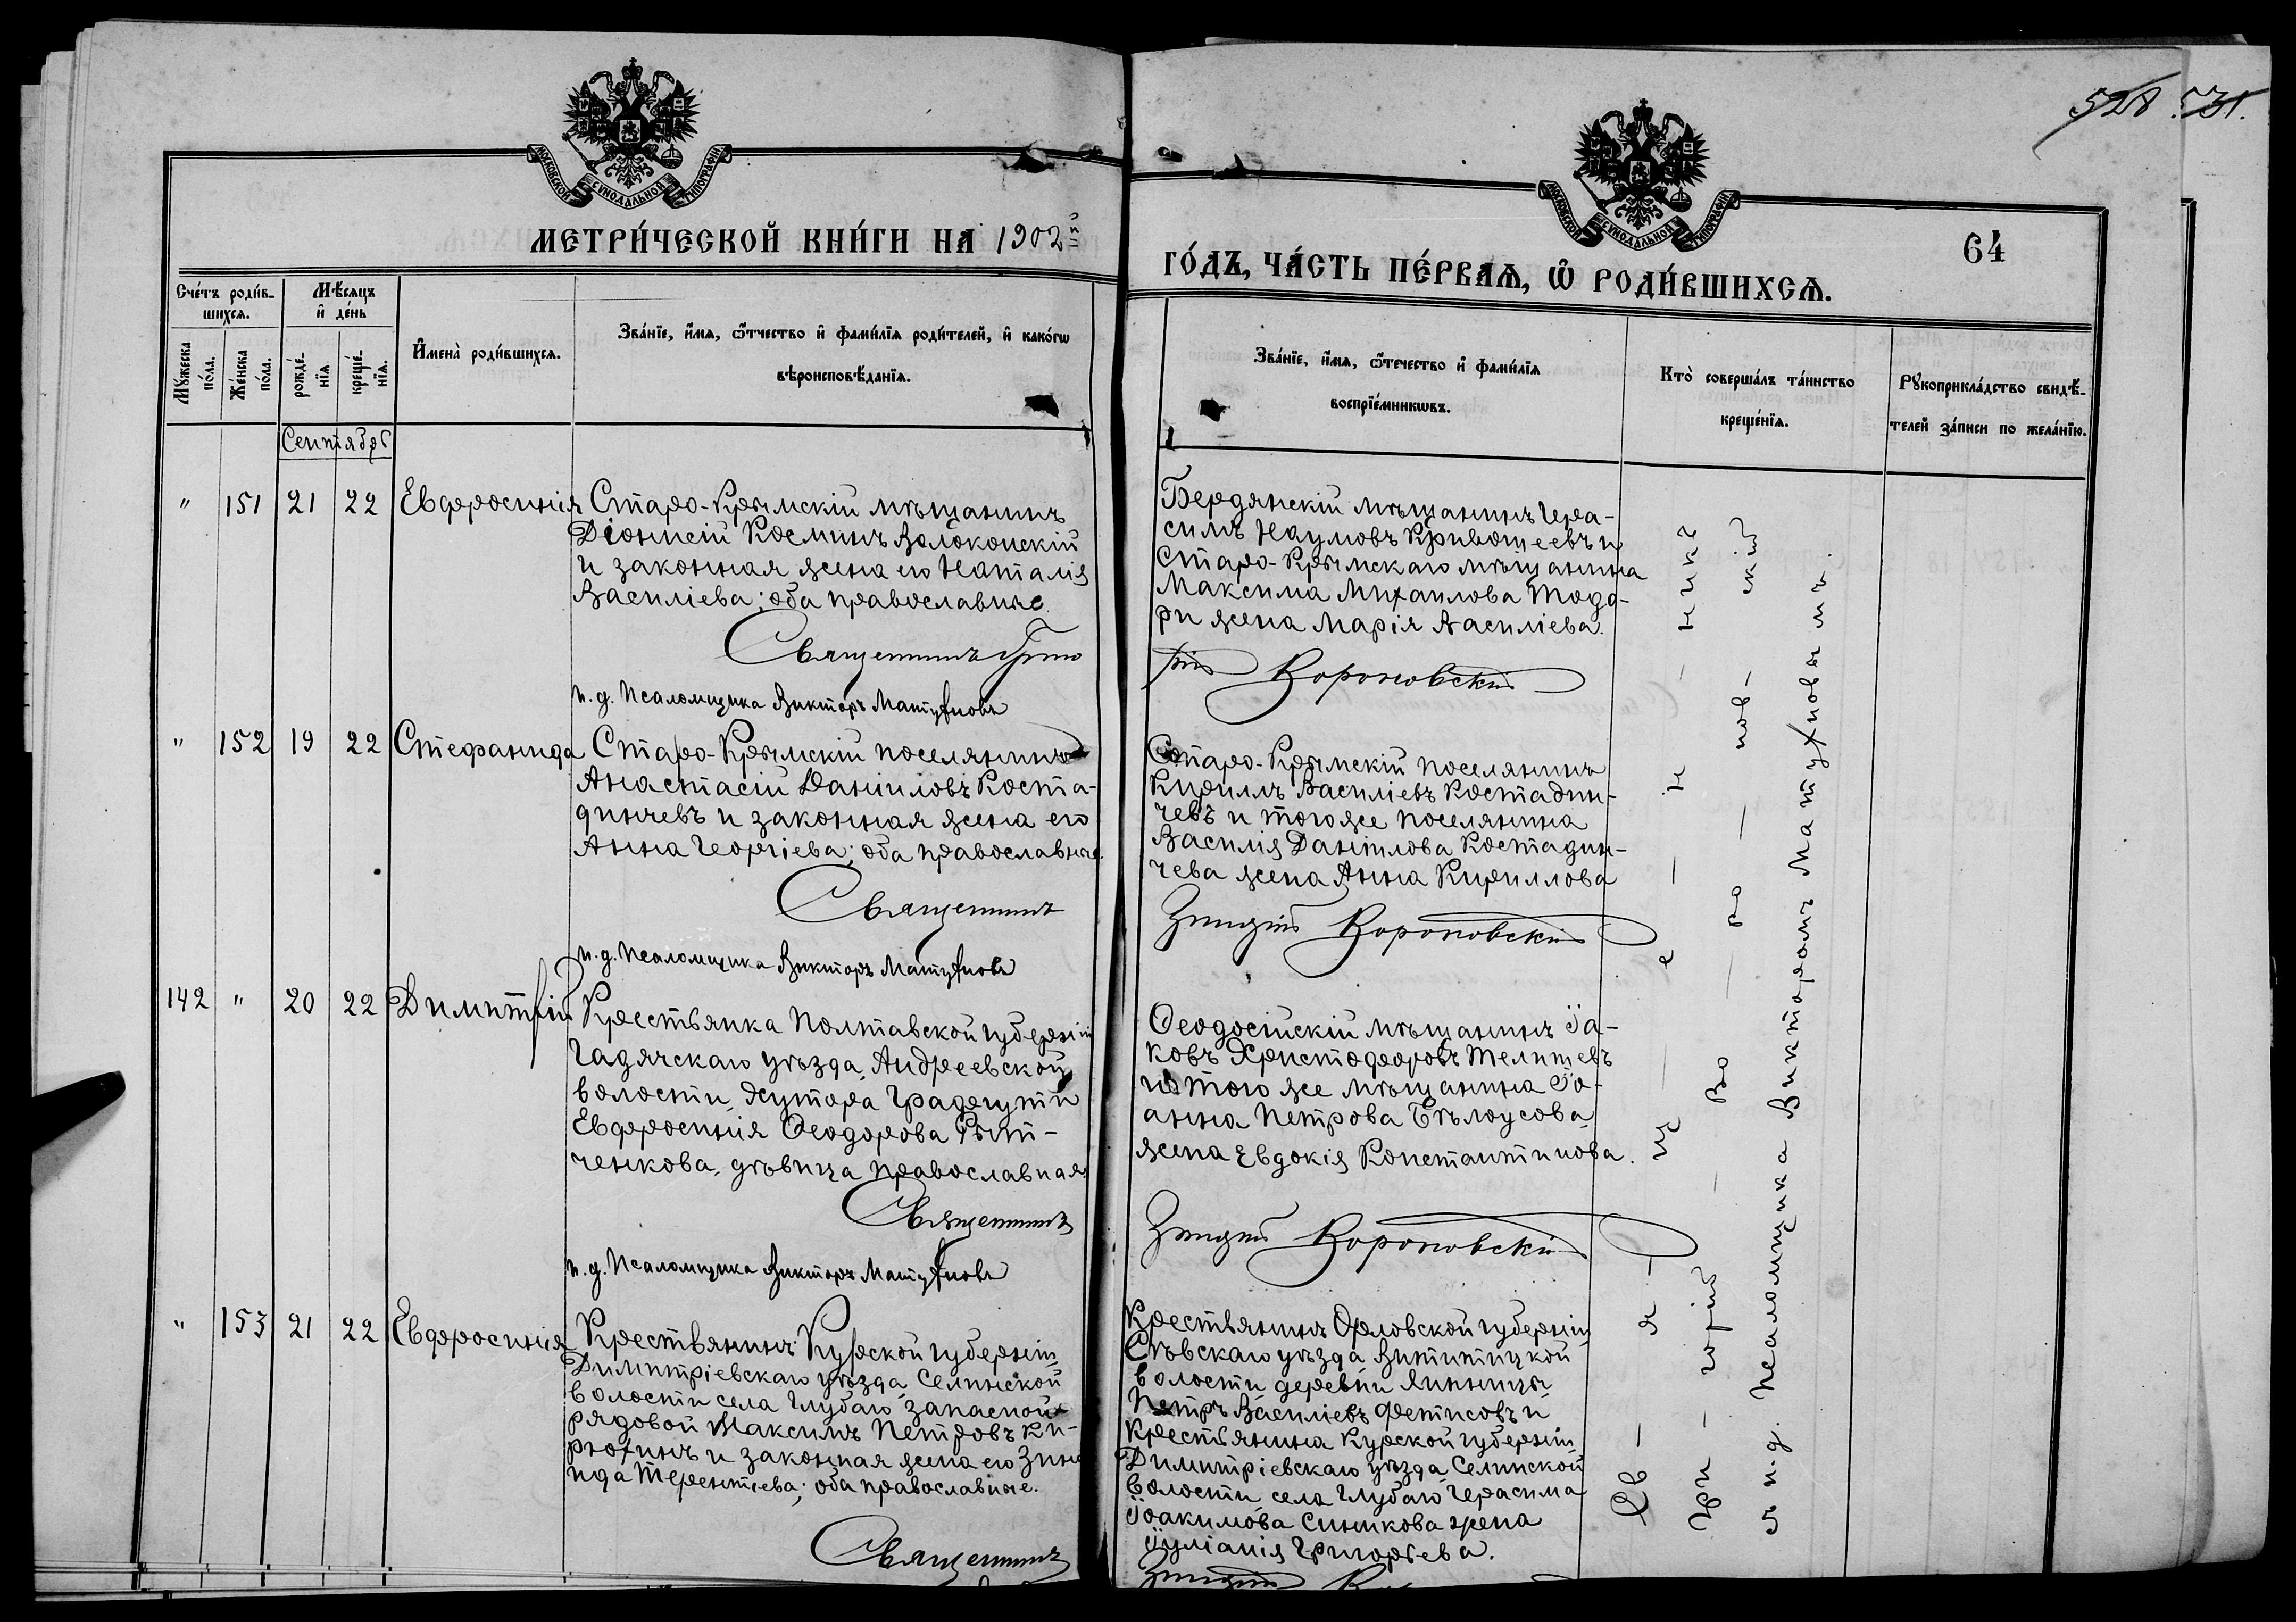 528 531.
МОСКОВСКОЙ СѴНОДАЛЬНОЙ ТИПОГРАФІИ
МОСКОВСКОЙ СѴНОДАЛЬНОЙ ТИПОГРАФІИ
МЕТРИ́ЧЕСКОЙ КНИ́ГИ НА 1902й
ГО́ДЪ, ЧА́СТЬ ПЕ́РВАѦ, Ѡ РОДИ́ВШИХСѦ.
64
Сче́тъ роди́в-
шихсѧ.
Мꙋ́жеска по́ла.
Же́нска по́ла.
Мѣ́сѧцъ
и҆ де́нь
рожде́-
нїѧ.
креще́-
нїѧ.
И҆мена̀ роди́вшихсѧ.
Зва́нїе, и҆́мѧ, ѻ҆́тчество и҆ фами́лїѧ роди́телей, и҆ како́гѡ
вѣроисповѣ́данїѧ.
Зва́нїе, и҆́мѧ, ѻ҆те́чество и҆ фами́лїѧ
воспрїе́мникѡвъ.
Кто̀ соверша́лъ та́инство
креще́нїѧ.
Рꙋкоприкла́дство свидѣ́-
телей за́писи по жела́нїю.
Сентябрь
" 151 21 22 Евфросинія
Старо-Крымскій мѣщанинъ
Діонисій Косминъ Волоконскій
и законная жена его Наталія
Василіева; оба православные.
Священникъ Григо
и.д. Псаломщика Викторъ Матухновъ
Бердянскій мѣщанинъ Гера-
симъ Наумовъ Кривошеевъ и
Старо-Крымскаго мѣщанина
Максима Михаилова Тодо-
ри жена Марія Василіева.
рій Вороновскій
" 152 19 22 Стефанида
Старо-Крымскій поселянинъ
Анастасій Даніиловъ Коста-
динчевъ и законная жена его
Анна Георгіева; оба православные.
Священникъ
и.д. Псаломщика Викторъ Матухновъ
Старо-Крымскій поселянинъ
Кириллъ Василіевъ Костадин-
чевъ и того же поселянина
Василія Даніилова Костадин-
чева жена Анна Кириллова
Вороновскій
142 " 20 22 Димитрій
Крестьянка Полтавской губерніи
Гадячскаго уѣзда, Андреевской
волости, хутора
Евфросинія Ѳеодорова
ченкова, дѣвица православная.
Священникъ
и.д. Псаломщика Викторъ Матухновъ
Ѳеодосійскій мѣщанинъ Іа-
ковъ Христофоровъ Телишевъ
и того же мѣщанина Іо-
анна Петрова Бѣлоусова
жена Евдокія Константинова.
Вороновскій
" 153 21 22 Евфросинія
Крестьянинъ Курской губерніи
Димитріевскаго уѣзда Селинской
волости села Глубаго запасной
рядовой Максимъ Петровъ Ки-
рюхинъ и законная жена его Зина
ида Терентіева; оба православные.
Священникъ
Крестьянинъ Орловской губерніи
Сѣвскаго уѣзда
волости деревни
Петръ Василіевъ Фетисовъ и
крестьянина Курской губерніи
Димитріевскаго уѣзда Селинской
волости села Глубаго Герасима
Іоакимова Синикова жена
Іуліанія Григорьева.
Св - я - щ - е - н - никъ
Гри - горій - Во - ро - нов - скій
и и.д. псаломщика Викторомъ Матухновымъ.